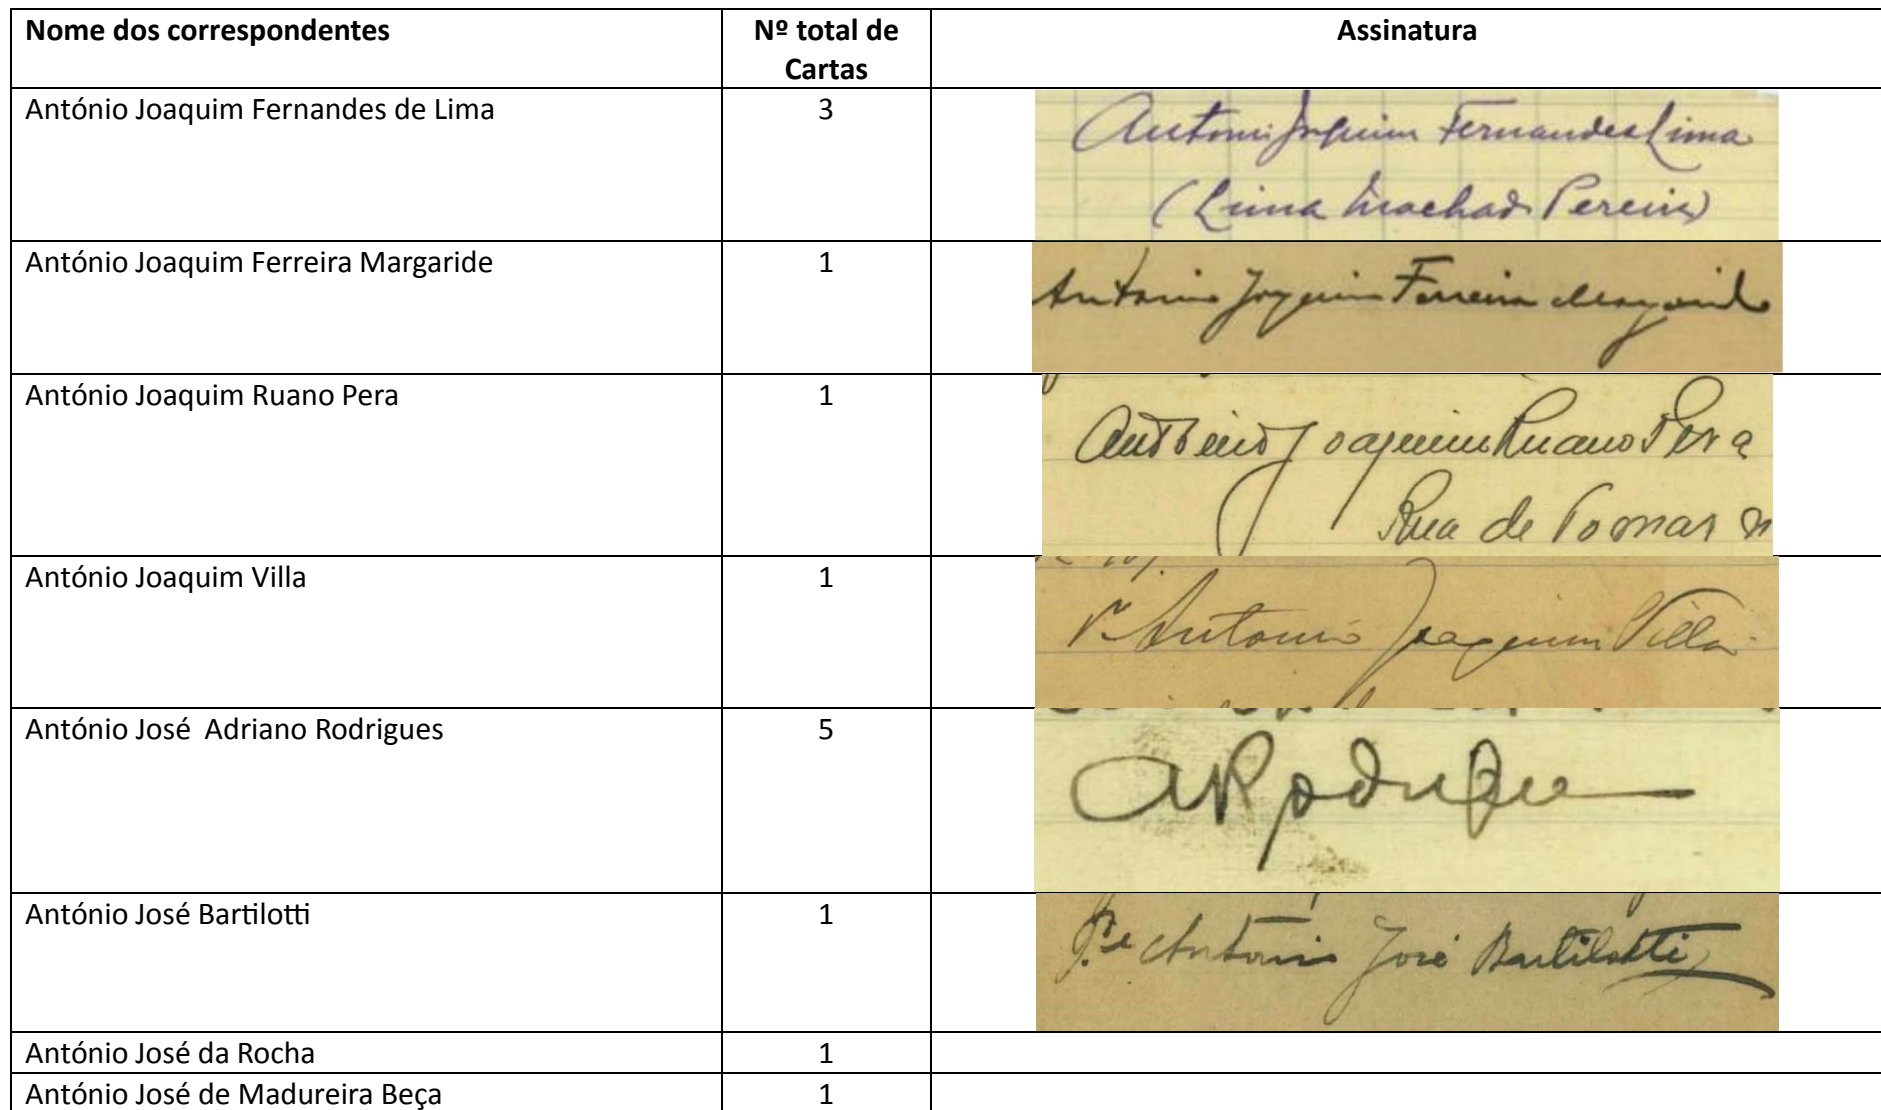 Nome dos correspondentes
Nº total de Cartas
Assinatura
António Joaquim Fernandes de Lima
3
Antonio Joaquim Fernandes Lima
(Lima Machado Pereira)
António Joaquim Ferreira Margaride
1
Antonio Joaquim Ferreira Margaride
António Joaquim Ruano Pera
1
Antonio Joaquim Ruano Pera
Rua de Tomar
António Joaquim Villa
1
Antonio Joaquim Villa
António José  Adriano Rodrigues
5
ARodrigues
António José Bartilotti
1
P.e Antonio José Bartilotti
António José da Rocha
1
António José de Madureira Beça
1